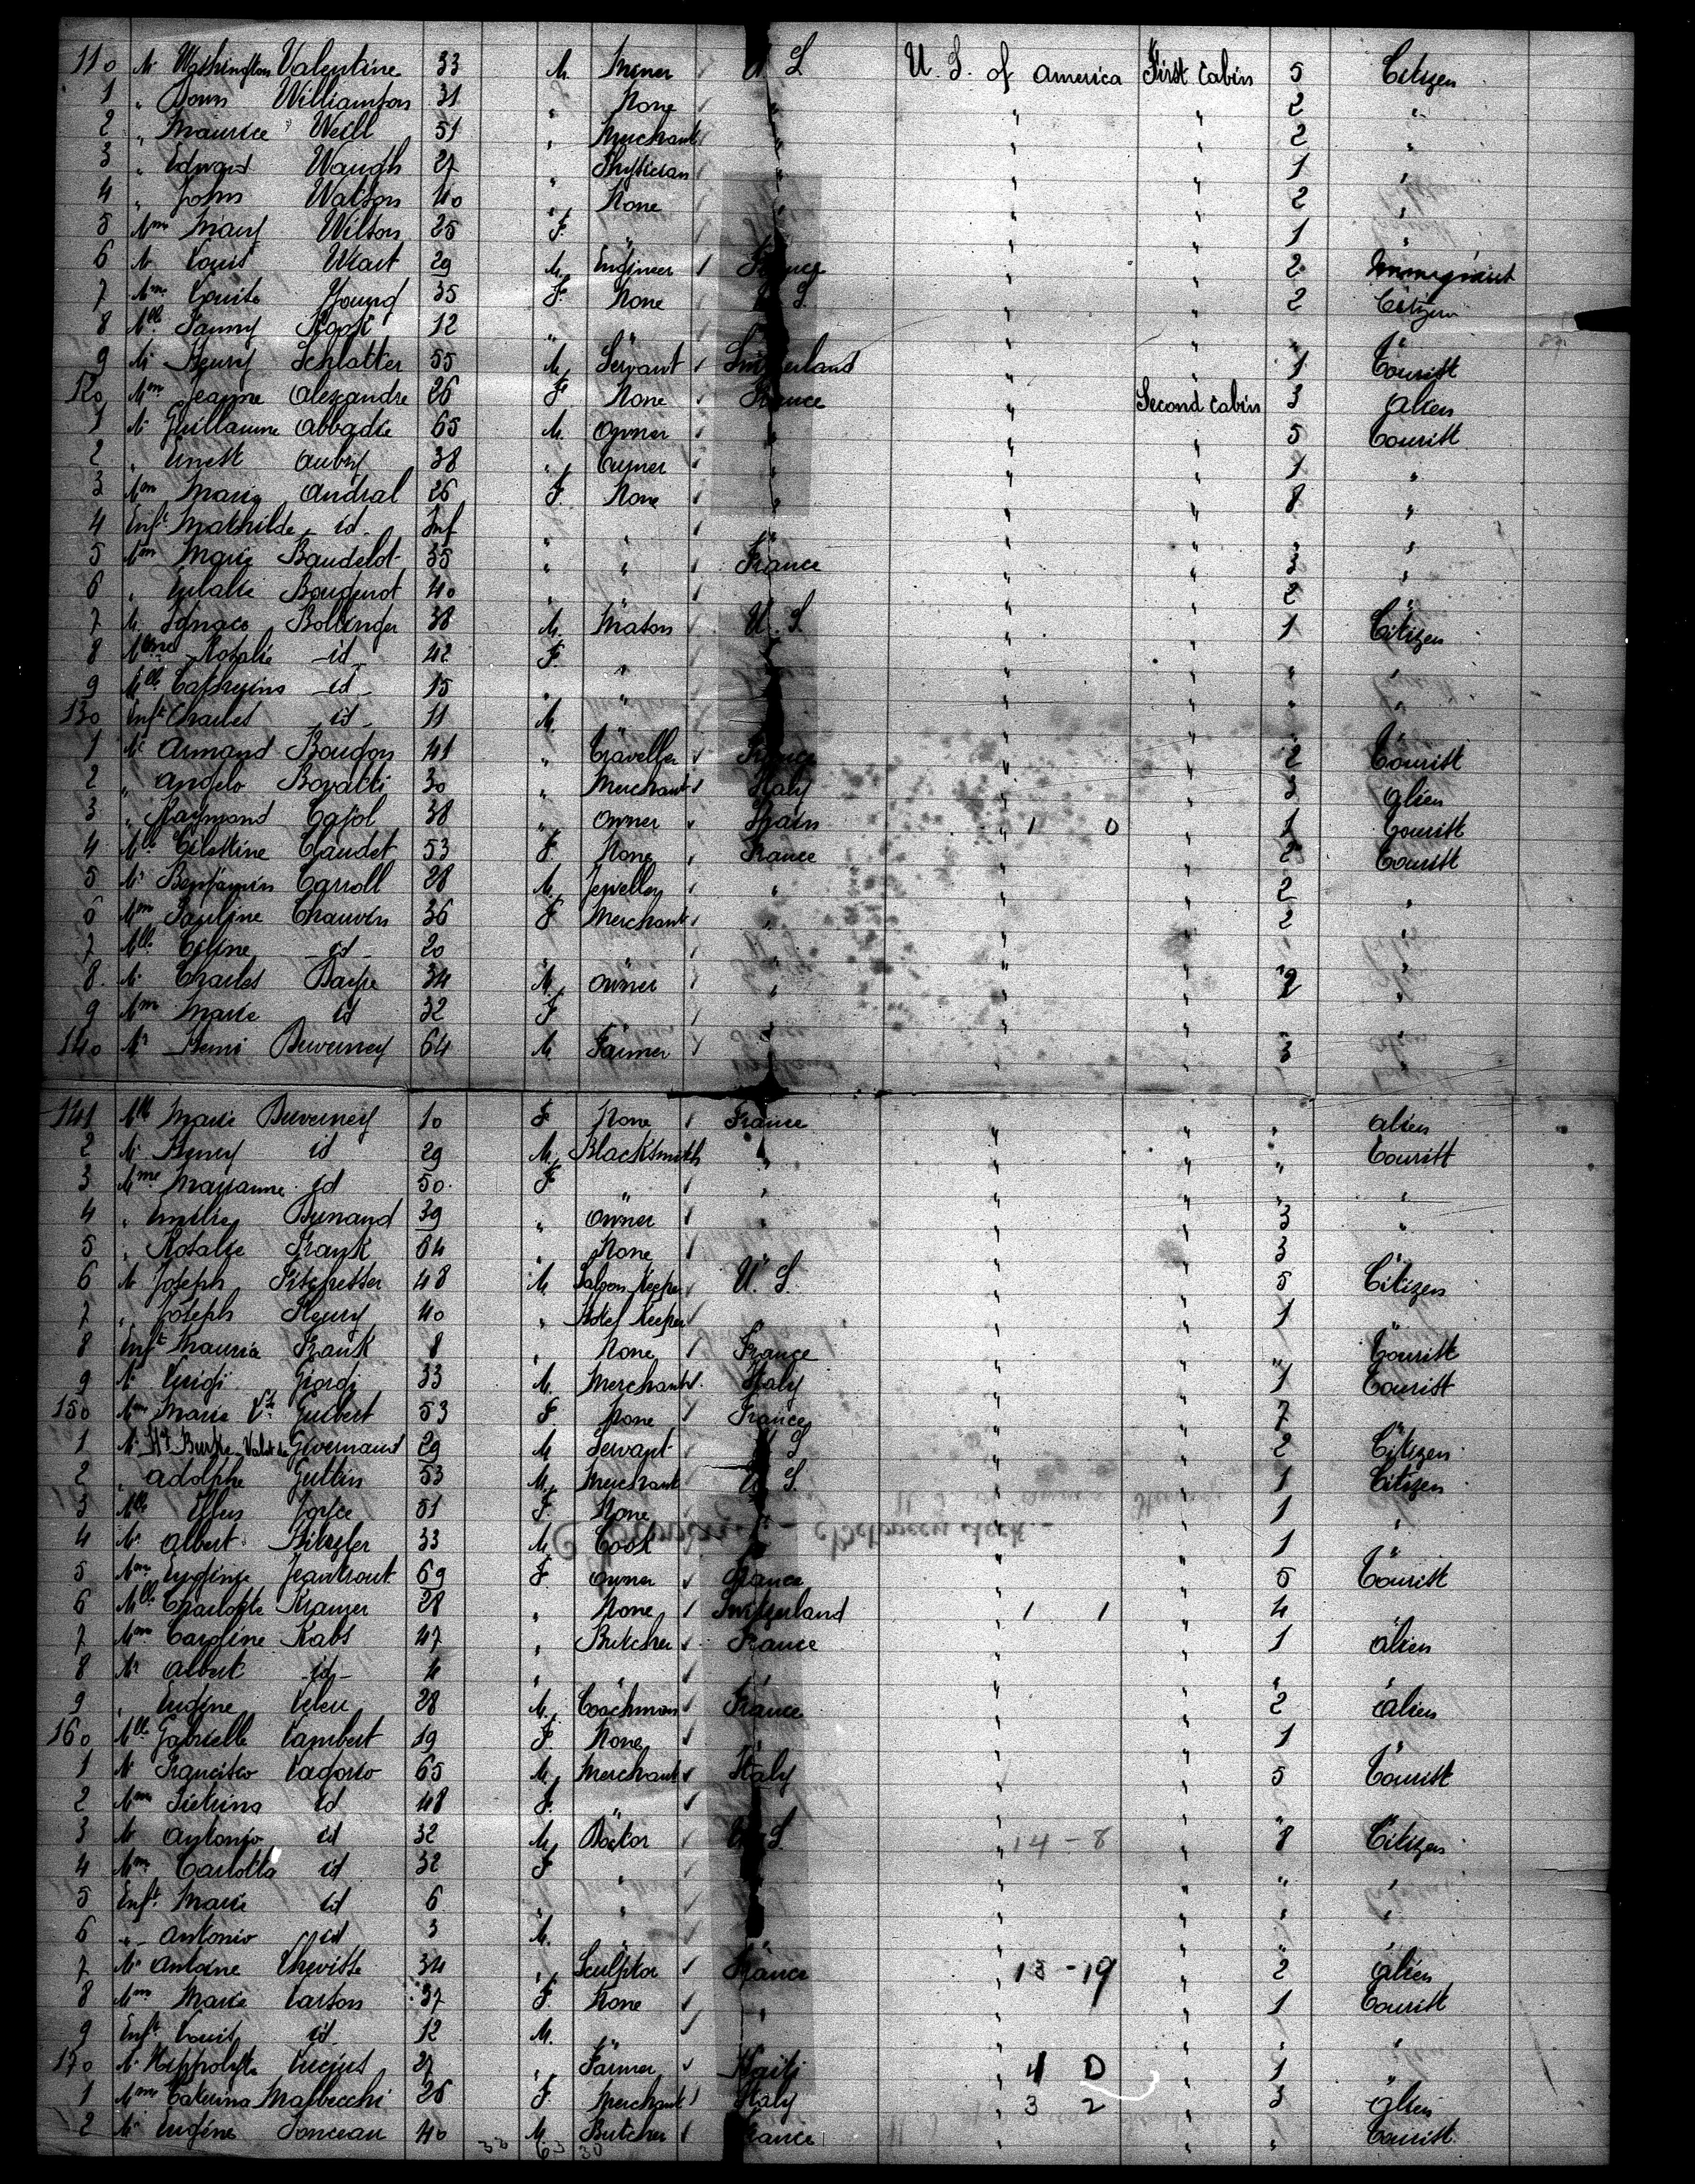 110 Mr Washington Valentine 33 M. Miner U S U. S. of America First Cabin 5 Citizen
1 " Williamson 31 " None " " " 2 "
2 " Maurice Weill 51 " Merchant " " " 2 "
3 " Edward Waugh 27 " Physician " " " 1 "
4 " John Watson 40 " None " " " 2 "
5 Mme Mary Wilson 25 F. " " " " 1 "
6 Mr Louis Wiart 29 M. Engineer France " " 2 Immigrant
7 Mme Louise Young 35 F. None U. S. " " 2 Citizen
8 Mlle Fanny 12 " " " " " " "
9 Mr Henry Schlatter 55 M. Servant Switzerland " " 1 Tourist
120 Mme Jeanne Alexandre 26 F None France " Second Cabin 3 Alien
1 Mr Guillaume Abbadie 65 M. Owner " " " 5 Tourist
2 " Ernest Aubry 38 " " " " 1 "
3 Mme Marie Andral 26 F. None " " " 8 "
4 Enft Mathilde id Inf " " " " " " "
5 Mme Marie Baudelot 35 " " France " " 3 "
6 " Eulalie Bougenot 40 " " " " " 2 "
7 Mr Ignace Bollinger 38 M. Mason U. S. " " 1 Citizen
8 Mme Rosalie id 42 F. " " " " " "
9 Mlle id 15 " " " " " " "
130 Enft Charles id 11 M. " " " " " "
1 Mr Armand Boudon 41 " Traveller France " " 2 Tourist
2 " Angelo 30 " Merchant Italy " " 3 Alien
3 " Raymond 38 " Owner Spain " 1 0 " 1 Tourist
4 Mlle Célestine Caudet 53 F. None France " " 2 Tourist
5 Mr Benjamin Carroll 28 M. Jeweller " " " 2 "
6 Mme Pauline Chauvin 36 F Merchant " " " 2 "
7 Mlle Céline id 20 " " " " " " "
8 Mr Charles 34 M. Owner " " " 2 "
9 Mme Marie id 32 F " " " " " "
140 Mr Henri Duverney 64 M. Farmer " " " 3 "
141 Mlle Marie Duverney 10 F None France " " " Alien
2 Mr Henry id 29 M. Blacksmith " " " " Tourist
3 Mme Marianne id 50 F " " " " " "
4 " Emilie Dunand 39 " Owner " " " 3 "
5 " Rosalie Frank 64 " None " " " 3 "
6 Mr Joseph 48 M Saloon Keeper U. S. " " 5 Citizen
7 " Joseph Fleury 40 " Hotel Keeper " " " 1 "
8 Enft Maurice Frank 8 " None France " " " Tourist
9 Mr Luigi 33 M. Merchant Italy " " 1 Tourist
150 Mme Marie Vve Guibert 53 F. None France " " 7 "
1 Mr Valet de Givernaud 29 M Servant U S " " 2 Citizen
2 " Adolphe 53 M. Merchant U. S. " " 1 Citizen
3 Mlle Ellen Joyce 51 F. None " " " 1 "
4 Mr Albert 33 M. Cook " " " 1 "
5 Mme Eugénie 69 F. Owner France " " 5 Tourist
6 Mlle Charlotte Kramer 28 " None Switzerland " 1 1 " 4 "
7 Mme Caroline Kabs 47 " Butcher France " " 1 Alien
8 Mr Albert id 4 " " " " " " "
9 " Eugène Leleu 28 M. Coachman France " " 2 Alien
160 Mlle Gabrielle Lambert 19 F. None " " " 1 "
1 Mr Francisco Lagorio 65 M. Merchant Italy " " 5 Tourist
2 Mme id 48 F. " " " " " "
3 Mr Antonio id 32 M. Doctor U S " 14 - 8 " 8 Citizen
4 Mme Carlotta id 32 F " " " " " "
5 Enft Marie id 6 " " " " " " "
6 " Antonio id 3 M. " " " " " "
7 Mr Antoine 34 " Sculptor France " 13 - 19 " 2 Alien
8 Mme Marie Larson 37 F. None " " " 1 Tourist
9 Enft Louis id 12 M. " " " " " "
170 Mr Hippolyte 27 " Farmer Haiti " 4 0 " 1 "
1 Mme Caterina Malbecchi 26 F. Merchant Italy " 3 2 " 3 Alien
2 Mr Eugène 40 M. Butcher France " " " Tourist